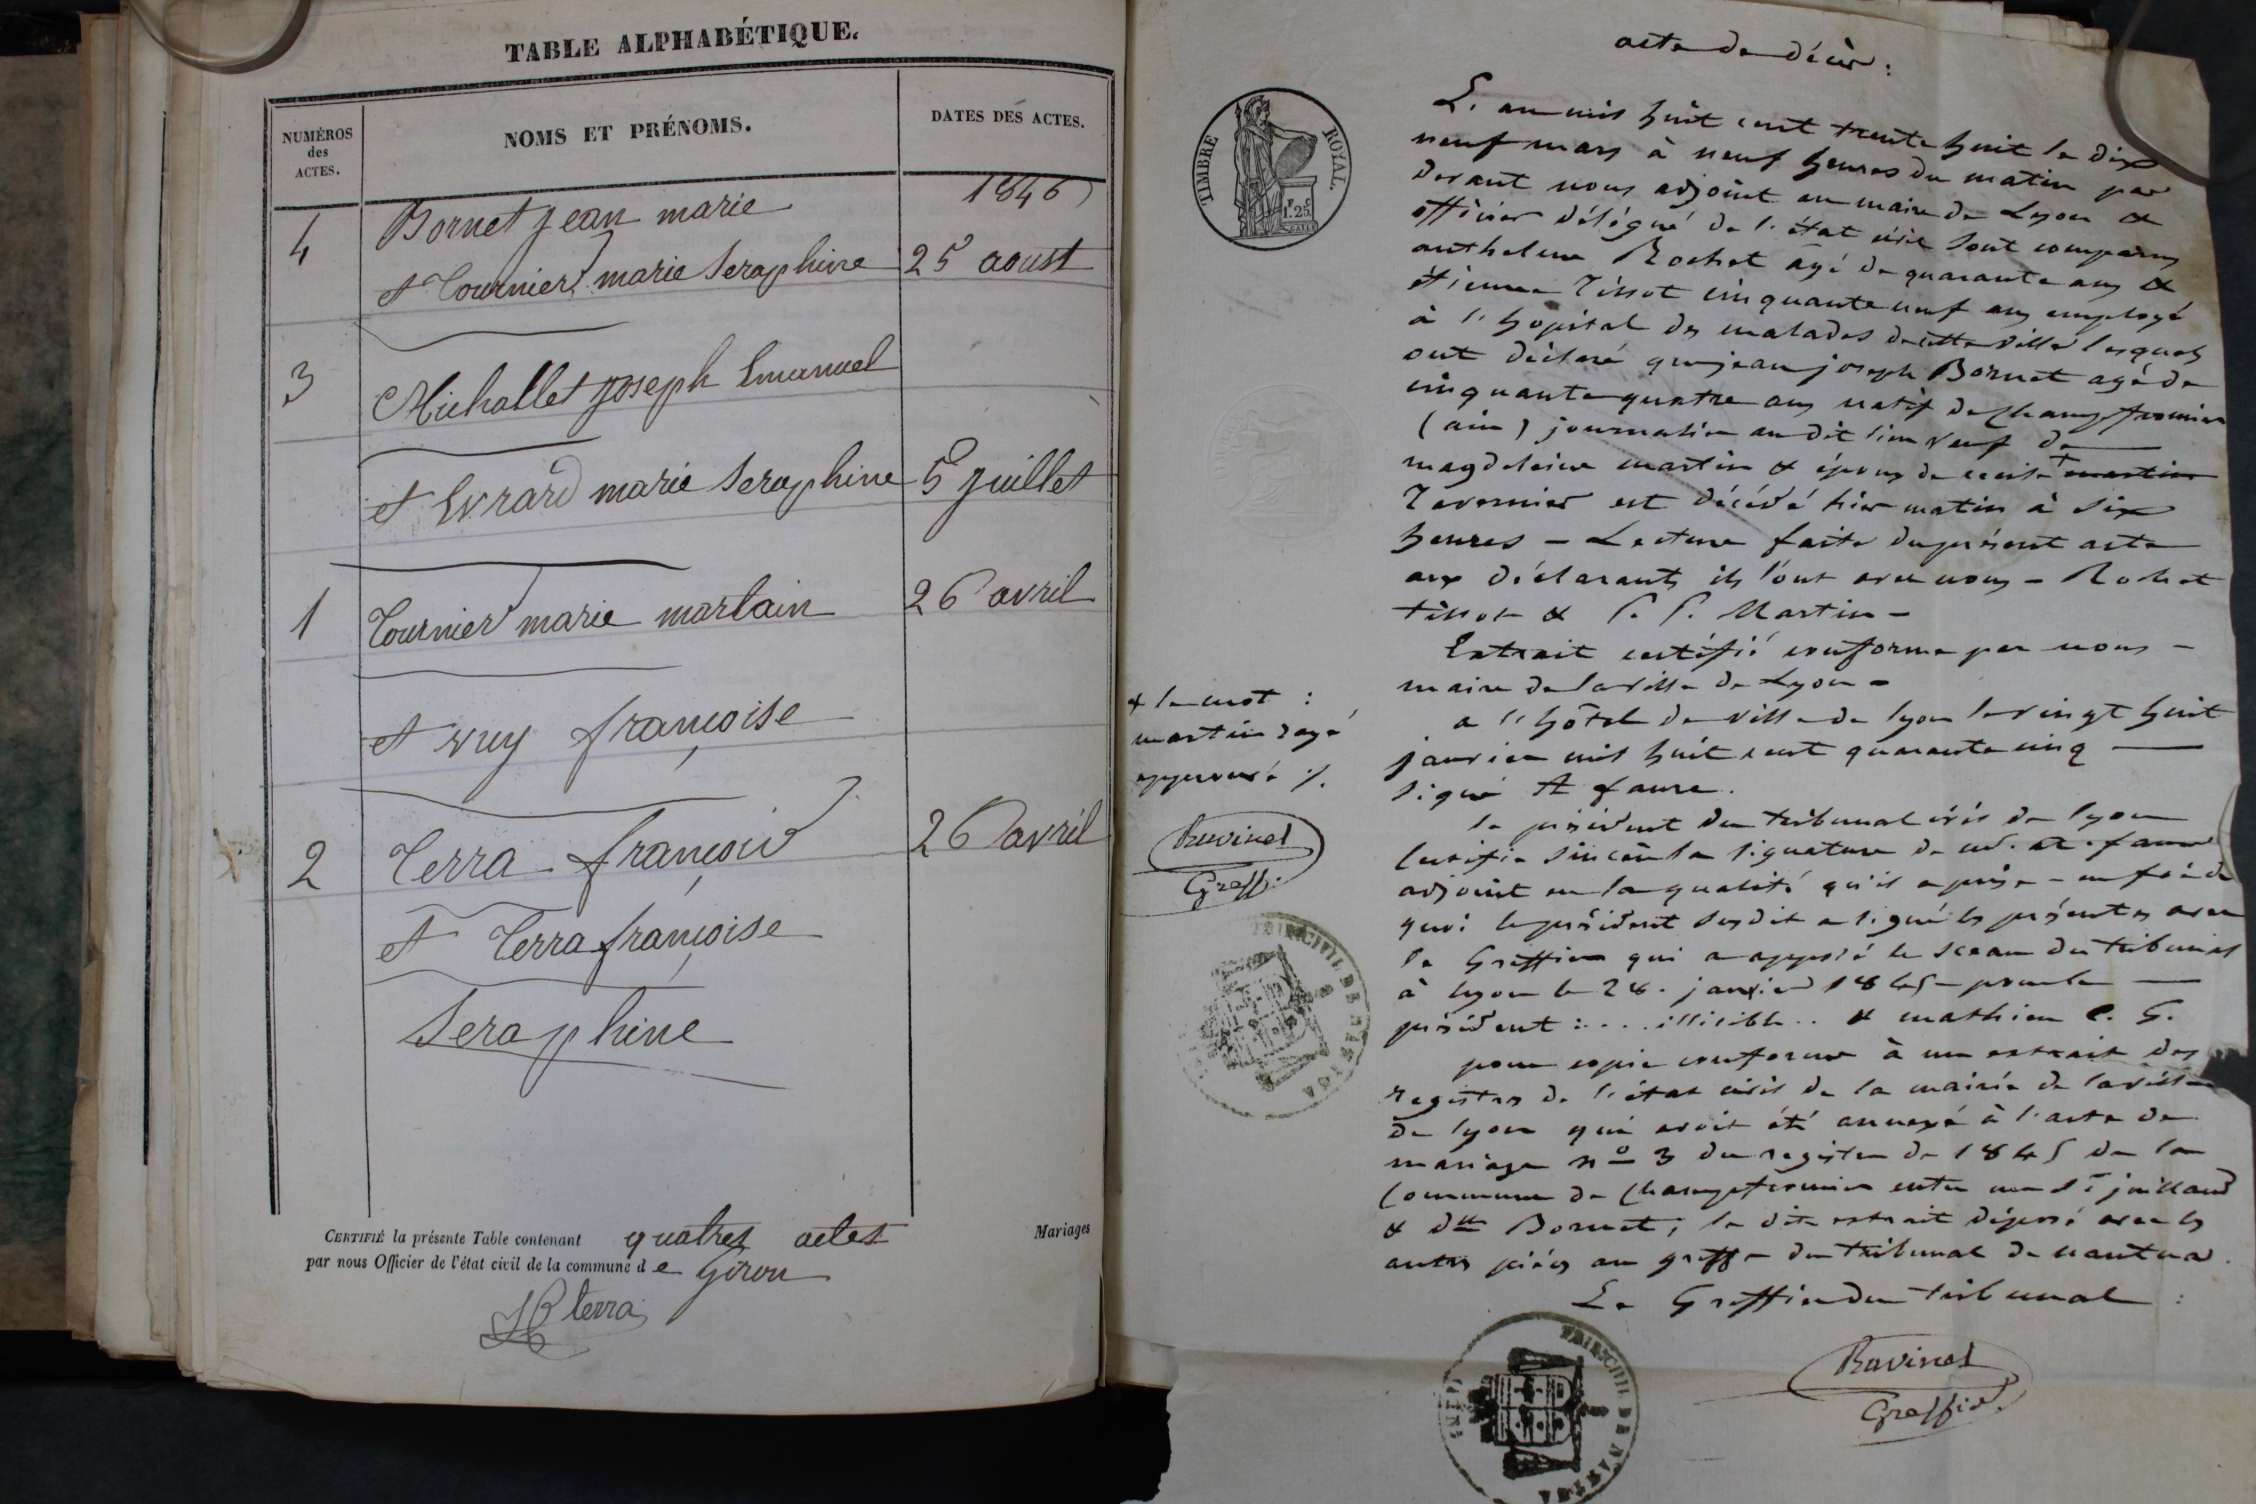 TABLE ALPHABÉTIQUE.
NUMÉROS
des
ACTES.
NOMS ET PRÉNOMS.
DATES DES ACTES.
1846
4
Bornet jean marie
et Tournier marie Seraphine
25 aoust
3
Michallet joseph Emanuel
et Evrard marie Seraphine
5 juillet
1
Tournier marie martain
26 avril
et vuy françoise
2
Terra françois
26 avril
et Terra françoise
Seraphine
CERTIFIÉ la présente Table contenant quatres actes Mariages
par nous Officier de l'état civil de la commune de Giron
terra
TIMBRE ROYAL.
1.25
acte de décès :
L'an mil huit cent trente huit le dix
neuf mars à neuf heures du matin par
devant nous adjoint au maire de Lyon &
officier délégué de l'état civil sont comparus
anthelme Rochet agé de quarante ans &
étienne Tissot cinquante neuf ans employé
à l'hopital des malades de cette ville lesquels
ont déclaré que jean joseph Bornet agé de
cinquante quatre ans natif de Champfromier
(ain) journalier au dit lieu veuf de
magdeleine martin & époux de cecile + martin
Tavernier est décédé hier matin à six
heures – Lecture faite du présent acte
aux déclarants ils l'ont avec nous – Rochet
tissot & Martin –
Extrait certifié conforme par nous –
maire de la ville de Lyon –
a l'hôtel de ville de lyon le vingt huit
janvier mil huit cent quarante cinq
signé A faure.
le président du tribunal civil de lyon
certifie sincère la signature de faure
adjoint en la qualité qu'il a prise – en foi de
quoi le président susdit a signé les présentes avec
le Greffier qui a apposé le sceau du tribunal
à lyon le 28. janvier 1845 – pour le
président : .... illisible .. & mathieu C. G.
pour copie conforme à un extrait des
registres de l'état civil de la mairie de la ville
de lyon qui avoit été annexé à l'acte de
mariage n° 3 du registre de 1845 de la
Commune de Champfromier entre un Sr juilland
& dlle Bornet ; le dit extrait déposé avec les
autres pièces au greffe du tribunal de nantua.
Le Greffier du tribunal :
Ravinet
Greffier.
+ le mot :
martin rayé
approuvé ./.
Ravinet
Greff:
TRIB. CIVIL DE NANTUA
TRIB. CIVIL DE NANTUA